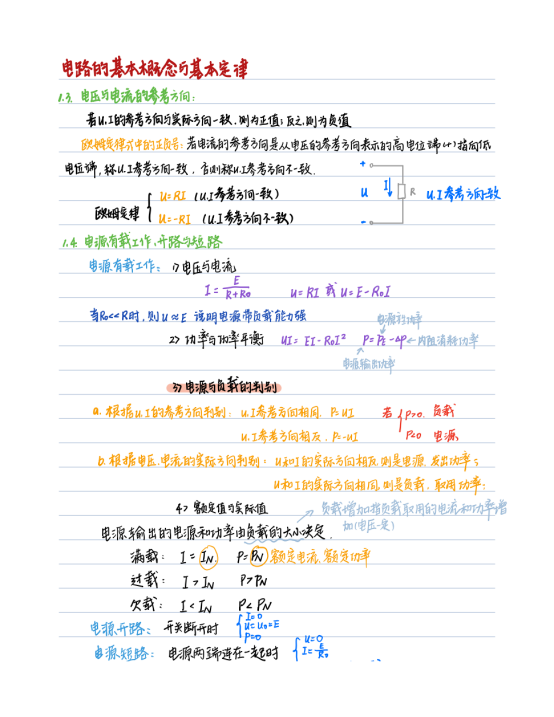 电路的基本概念与基本定律
1.3. 电压与电流的参考方向:
若U.I的参考方向与实际方向一致,则为正值;反之,则为负值
欧姆定律式中的正负号:若电流的参考方向是从电压的参考方向表示的高电位端(+)指向低
电位端,称U.I参考方向一致,否则称U.I参考方向不一致.
欧姆定律
U=RI (U.I参考方向一致)
U=-RI (U.I参考方向不一致)
+
U
I
R
-
U.I参考方向一致
1.4. 电源有载工作,开路与短路
电源有载工作: 1)电压与电流
I= E/(R+R0) U=RI 或 U=E-R0I
当R0<<R时,则U≈E 说明电源带负载能力强
电源的功率
2) 功率与功率平衡 UI=EI-R0I² P=PE-ΔP←内阻消耗功率
电源输出功率
3) 电源与负载的判别
a. 根据U.I的参考方向判别: U.I参考方向相同. P=UI 若 P>0. 负载
U.I参考方向相反. P=-UI P<0 电源.
b. 根据电压.电流的实际方向判别: U和I的实际方向相反,则是电源 发出功率;
U和I的实际方向相同,则是负载. 取用功率.
4) 额定值与实际值
负载增加指负载取用的电流和功率增
加(电压一定)
电源输出的电源和功率由负载的大小决定.
满载: I=IN. P=PN 额定电流.额定功率
过载: I>IN P>PN
欠载: I<IN P<PN
电源开路: 开关断开时 I=0
U=U0=E
P=0
电源短路: 电源两端连在一起时 U=0
I=E/R0